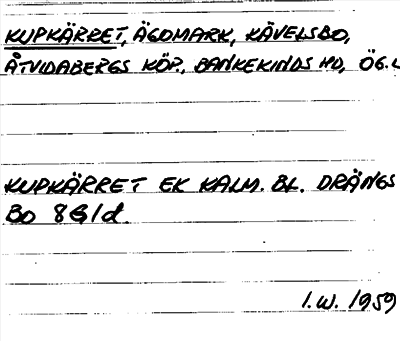 KUPKÄRRET, ÄGOMARK, KÄVELSBO,
ÅTVIDABERGS KÖP., BANKEKINDS HD, ÖG. L
KUPKÄRRET EK KALM. BL. DRÄNGS
BO 8G1d.
I.W. 1959